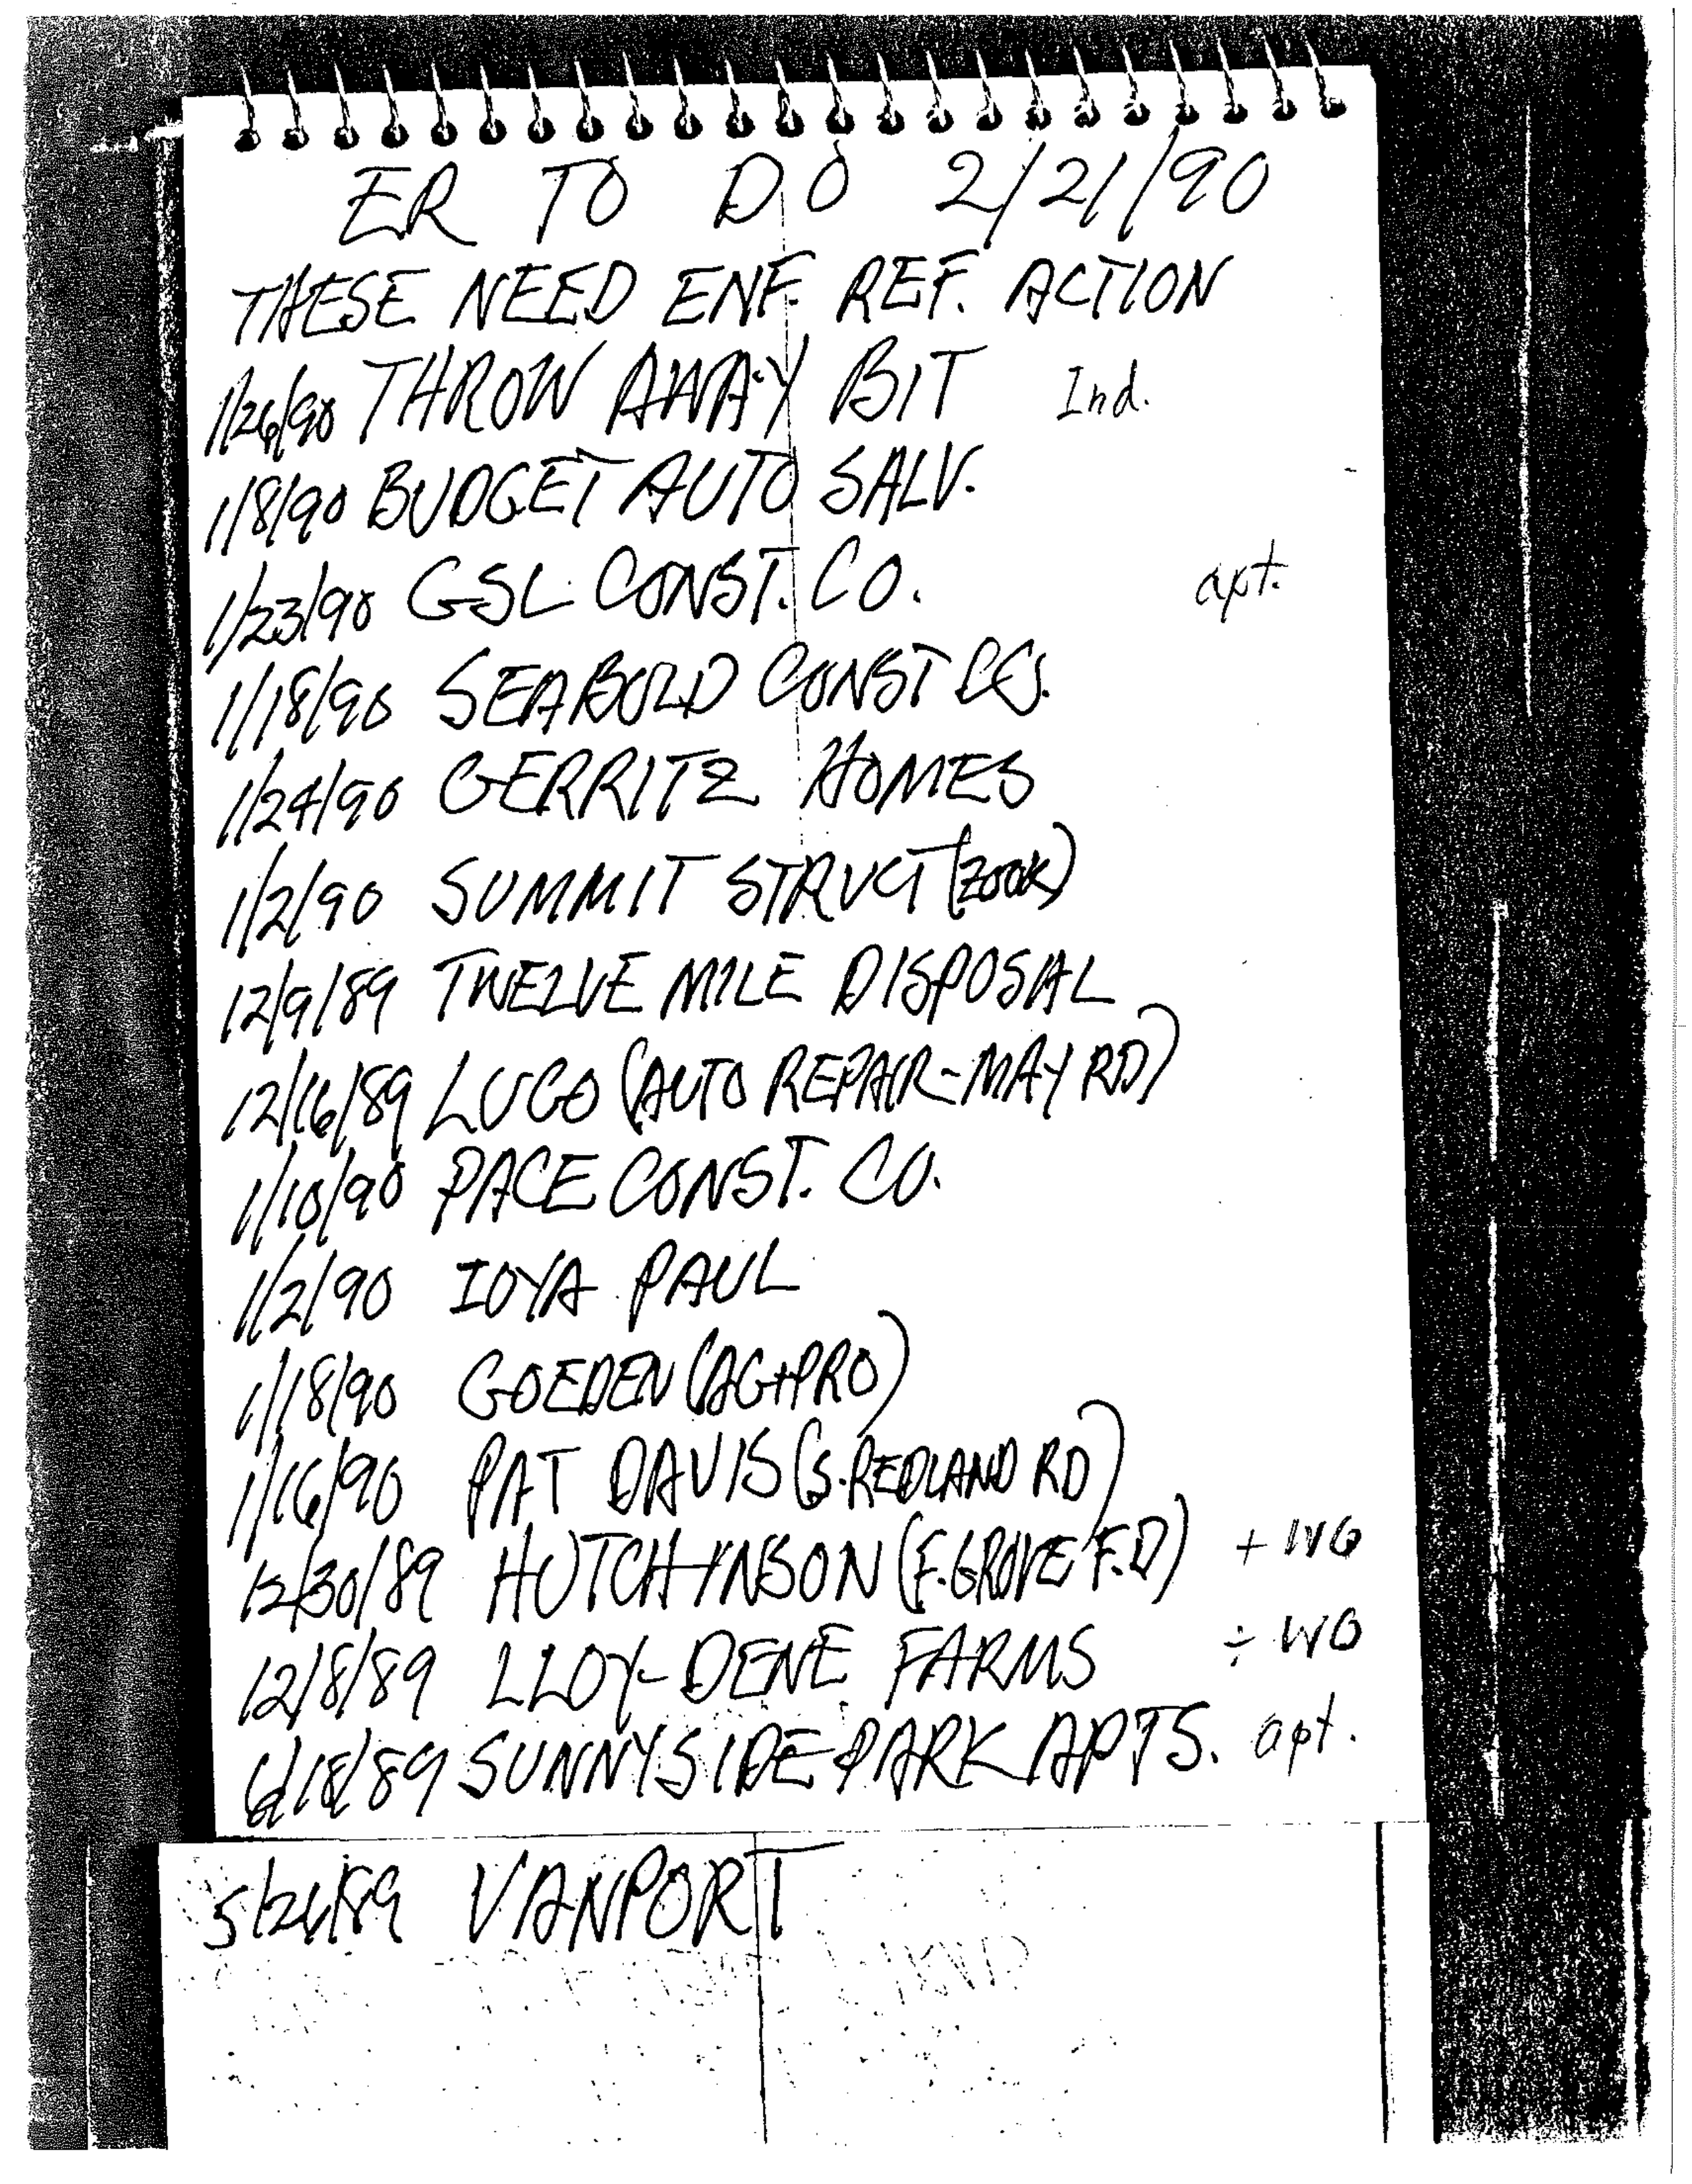 ER TO DO 2/21/90
THESE NEED ENF. REF. ACTION
1/26/90 THROW AWAY BIT Ind.
1/8/90 BUDGET AUTO SALV.
1/23/90 GSL CONST. CO. apt.
1/18/90 SEABOLD CONST CO.
1/24/90 GERRITZ HOMES
1/2/90 SUMMIT STRUCT (ZOOK)
12/9/89 TWELVE MILE DISPOSAL
12/16/89 LUCO (AUTO REPAIR-MAY RD)
1/10/90 PACE CONST. CO.
1/2/90 IOYA PAUL
1/18/90 GOEDEN (AG+PRO)
1/16/90 PAT DAVIS (S. REDLAND RD)
12/30/89 HUTCHINSON (F. GROVE F.D) + WQ
12/8/89 LLOY-DENE FARMS ÷ WQ
6/18/89 SUNNYSIDE PARK APTS. apt.
5/26/89 VANPORT